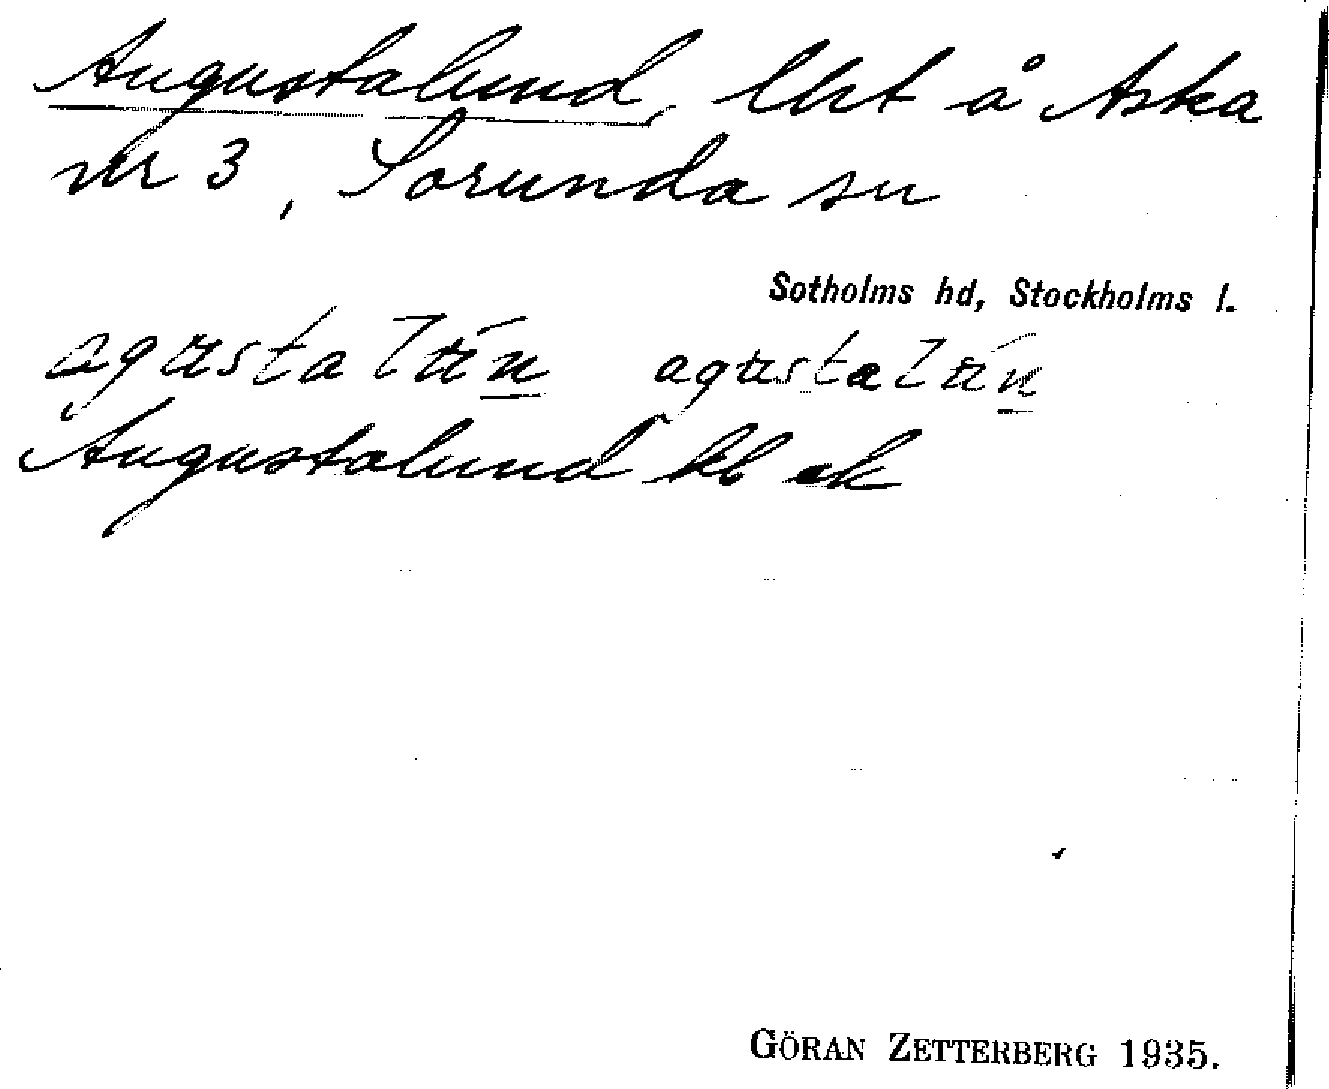 Augustalund, lht å Aska
nr 3, Sorunda sn
Sotholms hd, Stockholms l.
agustalún agustalún
Augustalund kb ek
GÖRAN ZETTERBERG 1935.